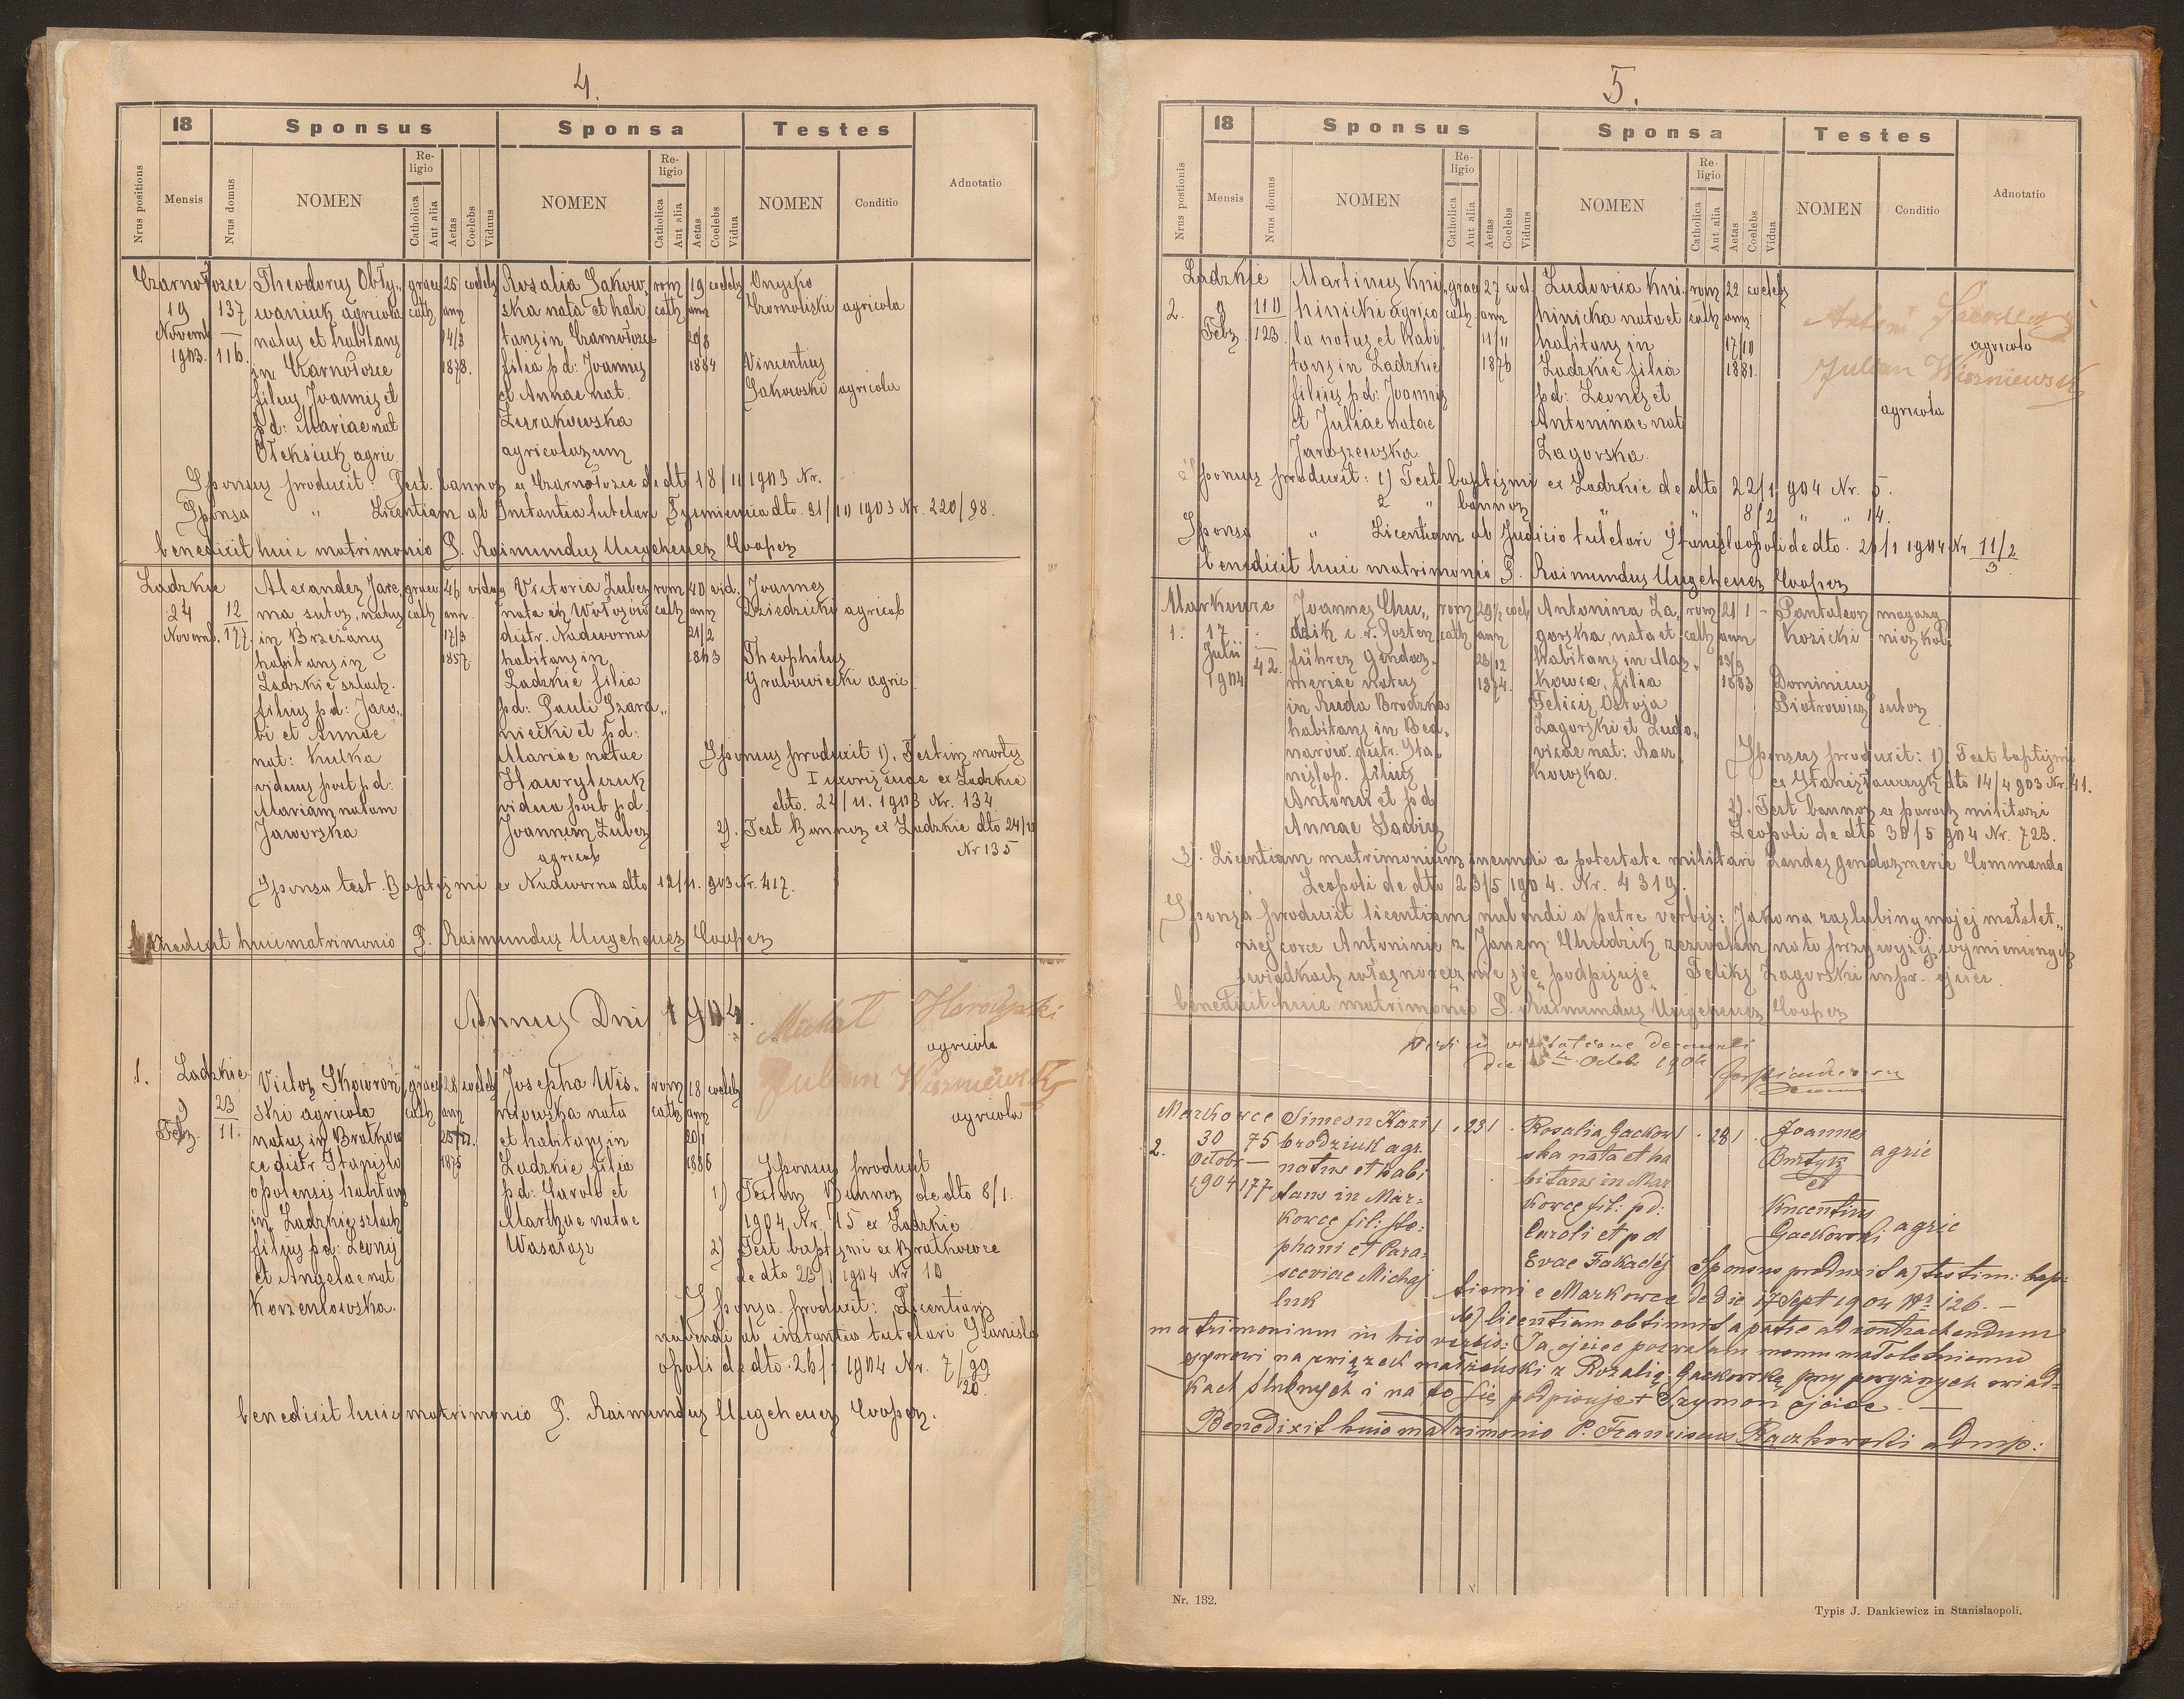 4.
18 Sponsus Sponsa Testes
Nrus positions Mensis Nrus domus NOMEN Religio Catholica Aut alia Aetas Coelebs Viduus NOMEN Religio Catholica Aut alia Aetas Coelebs Vidua NOMEN Conditio Adnotatio
Czarnołozce
19
Novemb
1903.
137
116.
Theodorus Obły„
waniuk agricola
natus et habitans
in Czarnołozce
filius Joannis et
pd: Mariae nat
Oleksiuk agric
graeco
cath
25
ann
14/3
1878.
coelebs
Rosalia Sakow„
ska nata et habi
tans in Czarnołozce
filia pd: Joannis
et Annae nat.
Żurakowska
agricolarum
rom
cath
19
ann
20/8
1884
coelebs
Onyfko
Czornoliski agricola
Vincentius
Sakowski agricola
Sponsus produxit: Test. bannor ex Czarnołozce de dto 18/11 1903 Nr.
Sponsa „ Licentiam ab Instantia tutelari Tysmienica dto. 21/10 1903 Nr. 220/98.
benedixit huic matrimonio P. Raimundus Ungeheuer Cooper
Ladzkie
24
Novemb.
12
177
Alexander Jare„
ma, sutor, natus
in Brzeżany
habitans in
Ladzkie szlach.
filius pd: Jaco„
bi et Annae
nat: Kulka
viduus post pd:
Mariam natam
Jaworska
graeco
cath
46
ann.
17/3
1857.
viduus
Victoria Zuber
nata ex Wołosów
distr. Nadworna
habitans in
Ladzkie filia
pd: Pauli Szara„
niecki et pd:
Mariae natae
Hawryliuk
vidua post pd.
Joannem Zuber
agricol
rom
cath
40
ann
21/2
1863
vid.
Joannes
Dziedzicki agricol
Theophilus
Grabowiecki agric.
Sponsus produxit 1). Testim mortis
I uxoris suae ex Ladzkie
dto. 24/11. 1903 Nr. 134
2). Test Bannor ex Ladzkie dto 24/11
Nr 135
Sponsa test. Baptismi ex Nadworna dto 12/11. 903 Nr. 417.
benedixit huic matrimonio P. Raimundus Ungeheuer Cooper
Annus Dni 1904.
1.
Ladzkie
9
Febr.
23
11.
Victor Skowroń„
ski agricola
natus in Bratkow
ce distr Stanisla
opolensis habitans
in Ladzkie szlach
filius pd: Leonis
et Angelae nat
Korzeniowska.
graeco
cath
28
ann
1875
coelebs
Josepha Wis„
niowska nata
et habitans in
Ladzkie filia
pd: Caroli et
Marthae natae
rom
cath
18
ann
20/1
1886
coelebs
Michał Horodyski
agricola
Julian Wiszniewski
agricola
Sponsus produxit
1) Testim Bannor de dto 8/1.
1904 Nr. 15 ex Ladzkie
2) Test baptismi ex Bratkowce
de dto 25/1 1904 Nr 10
Sponsa produxit: Licentiam
nubendi ab instantia tutelari Stanisla
opoli de dto. 26/1 1904 Nr. 7/99
20.
benedixit huic matrimonio P. Raimundus Ungeheuer Cooper.
5.
18 Sponsus Sponsa Testes
Nrus postionis Mensis Nrus domus NOMEN Religio Catholica Aut alia Aetas Coelebs Viduus NOMEN Religio Catholica Aut alia Aetas Coelebs Vidua NOMEN Conditio Adnotatio
2.
Ladzkie
9
Febr
110
123.
Martinus Kni„
hinicki agrico
la natus et habi„
tans in Ladzkie
filius pd: Joannis
et Juliae natae
Jaroszewska.
graec
cath
27
ann
11/11
1876
coel.
Ludovica Kni„
hinicka nata et
habitans in
Ladzkie filia
pd: Leonis et
Antoninae nat
Zagorska.
rom
cath
22
ann
17/10
1881.
coelebs
Antoni
agricola
Julian Wiszniewski
agricola
Sponsus produxit: 1) Test baptismi ex Ladzkie de dto 22/1 904 Nr. 5.
2 „ bannor „ „ 8/2 „ „ 14.
Sponsa „ Licentiam ab Judicio tutelari Stanislaopoli de dto. 26/1 1904 Nr. 11/2
3
benedixit huic matrimonio P. Raimundus Ungeheuer Cooper
Markowce
1.
17
Julii
1904
42.
Joannes Chu„
dzik c. r. Posten
führer Gendar„
meriae natus
in Ruda Brodzka
habitans in Bed„
narów. distr. Sta„
nislop. filius
Antonii et pd
Annae
rom
cath
29½
ann
23/12
1874.
coel
Antonina Za„
gorska, nata et
habitans in Mar„
kowce, filia
Felicis Ostoja
Zagorski et Ludo„
vicae nat: Racz„
kowska.
rom
cath
21
ann
1883
1 -
Pantaleon magazy
Kozicki nier kol.
Dominicus
Piotrowicz sutor
Sponsus produxit: 1). Test baptismi
ex Stanisławczyk dto 14/4 903 Nr. 41.
2). Test bannor ex paroch militari
Leopoli de dto 30/5 904 Nr. 723.
3). Licentiam matrimonium ineundi a potestate militari Landes gendarmerie Commando
Leopoli de dto 23/5 1904. Nr. 4319.
Sponsa produxit licentiam nubendi a patre verbis: Jako na zaslubiny mojej małolet„
niej córce Antoninie z Janem Chudzik zezwalam na to przy wyżej wymienionych
świadkach własnoręcznie się podpisuję„ Feliks Zagorski mpr. ojciec.
benedixit huic matrimonio P. Raimundus Ungeheuer Cooper
visitatione Decanali
die 5 Octob 1904
Markowce
2.
30
Octobr
1904
75
177
Simeon Kazi
brodziuk agr.
natus et habi
tans in Mar-
kowce fil: Ste-
phani et Para-
sceviae Michaj
luk
1 . 23 1 .
Rosalia Gackow
ska nata et ha
bitans in Mar
kowce fil: pd:
Caroli et pd
Evae Fakadéj
1 . 28 1 .
Joannes
Burtyk agric
et
Vincentius
Gackowski agric
Sponsus produxit a) testim: bap-
tismi e Markowce de die 17 Sept 1904 No 126. –
b) licentiam obtinuit a patre ad contrahendum
matrimonium in his verbis: Ja ojciec pozwalam memu małoletniemu
synowi na związek małżeński z Rozalią Gackowską przy powyższych świad-
kach ślubnych i na to się podpisuję + Szymon ojciec. –
Benedixit huic matrimonio P. Franciscus Raczkowski admp:
Nr. 132.
Typis J. Dankiewicz in Stanislaopoli.